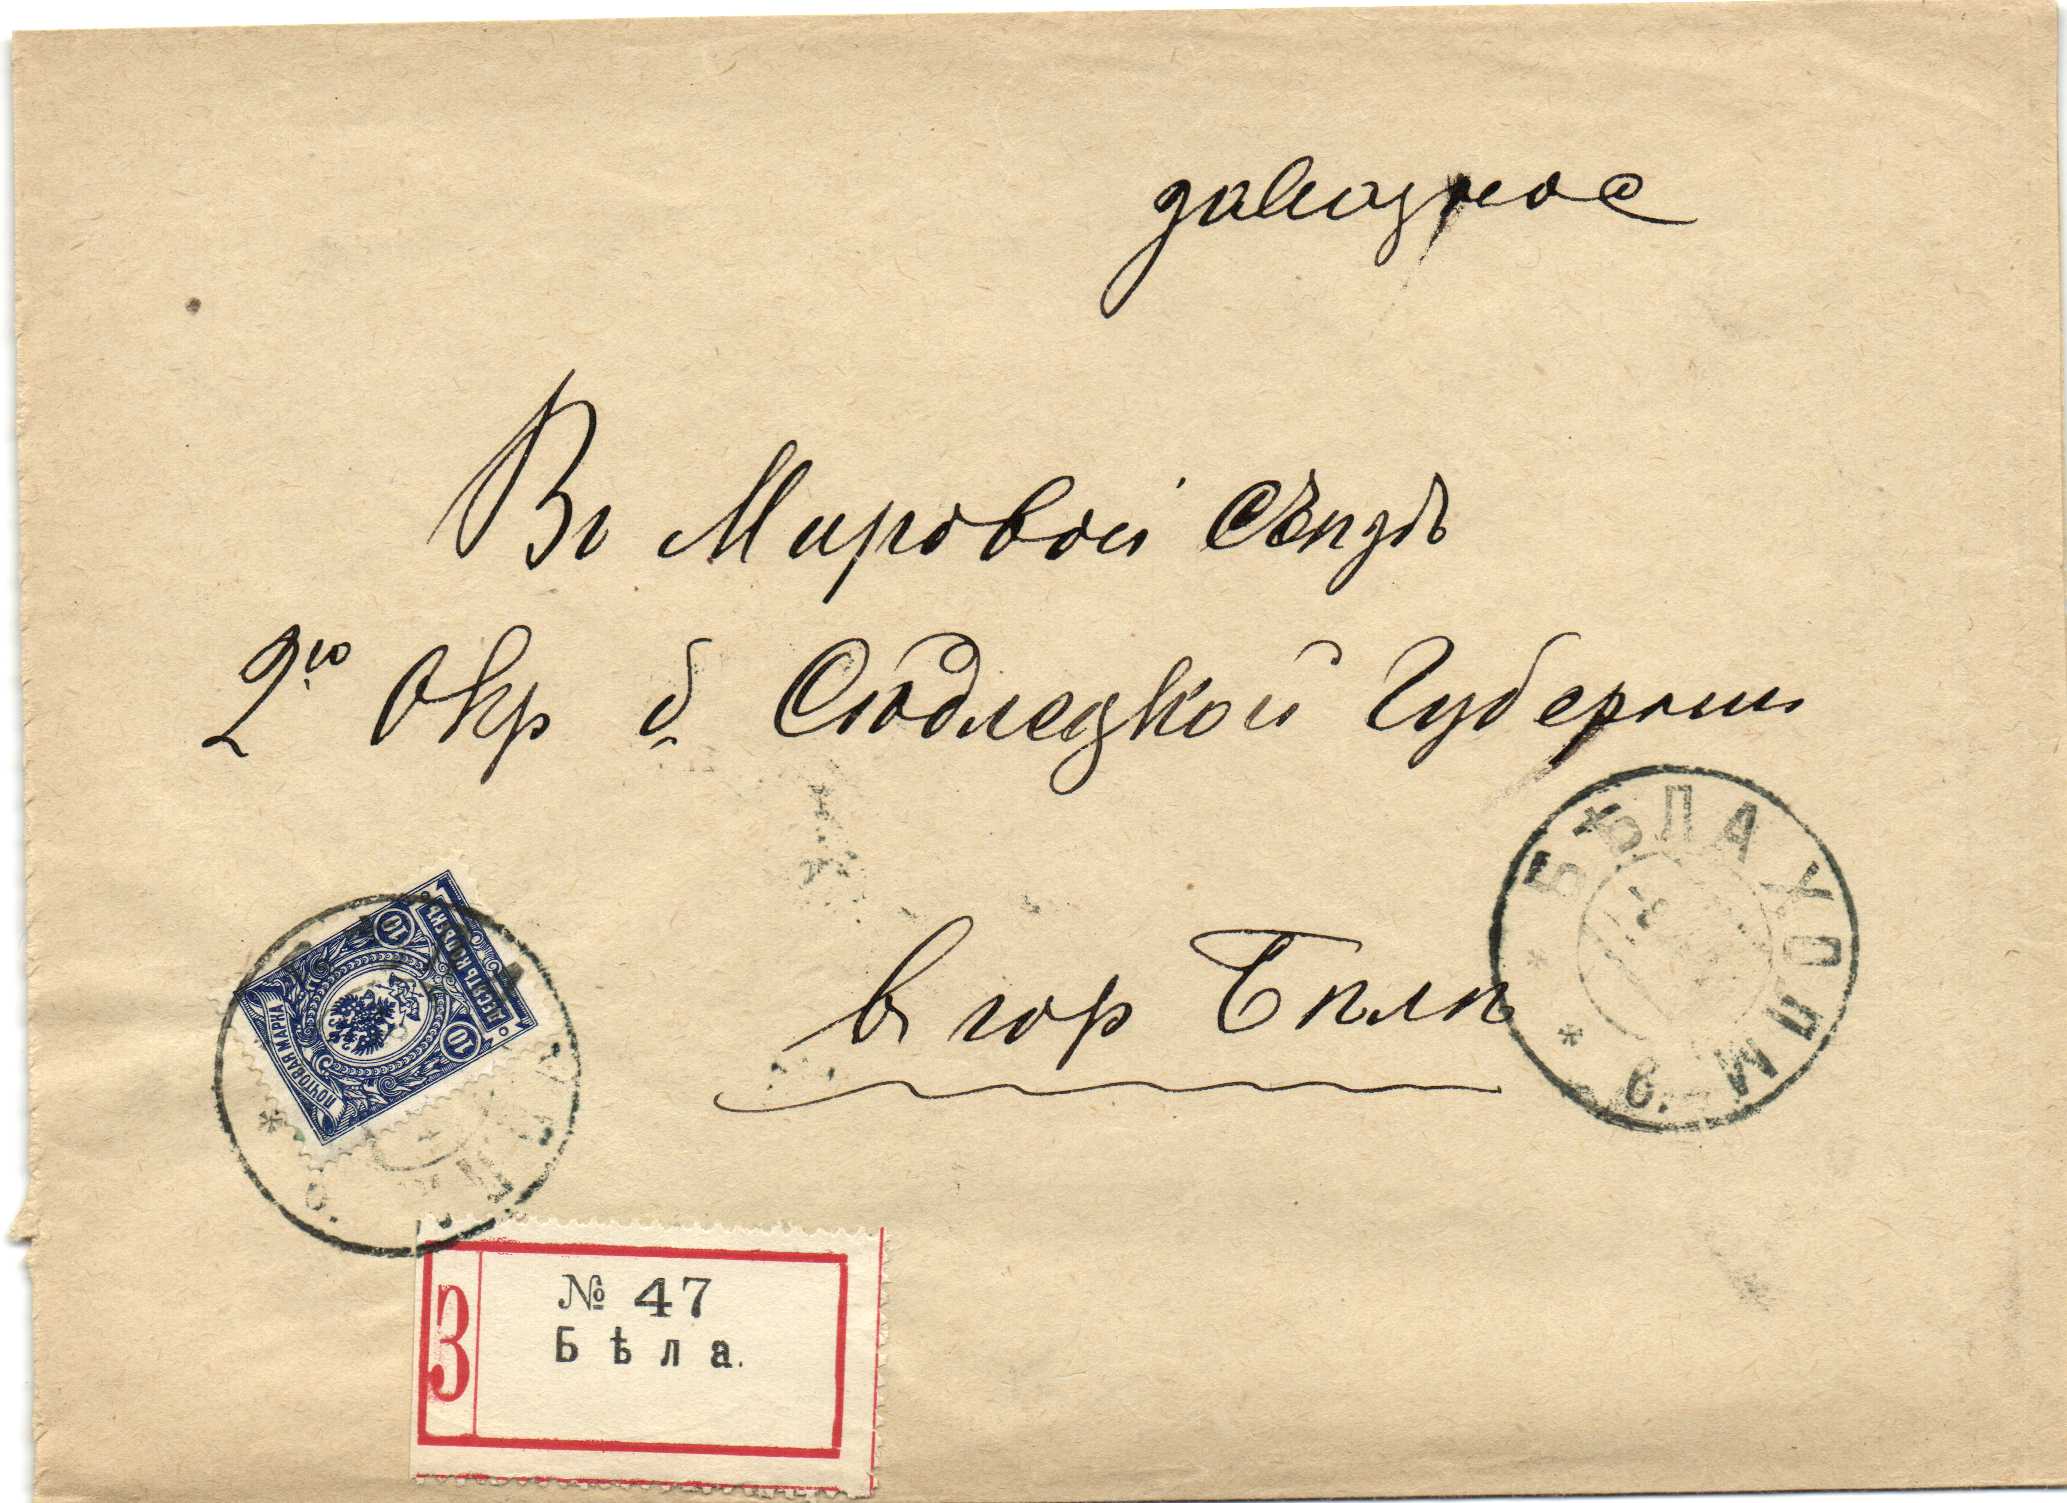 заказное
Въ Мировой Съѣздъ
2го Окр б. Сѣдлецкой Губернии
в гор Бѣлѣ
БѢЛА ХОЛМ. Г.
ПОЧТОВАЯ МАРКА
ДЕСЯТЬ КОПѢЕКЪ
10
10
З
№ 47
Бѣла.